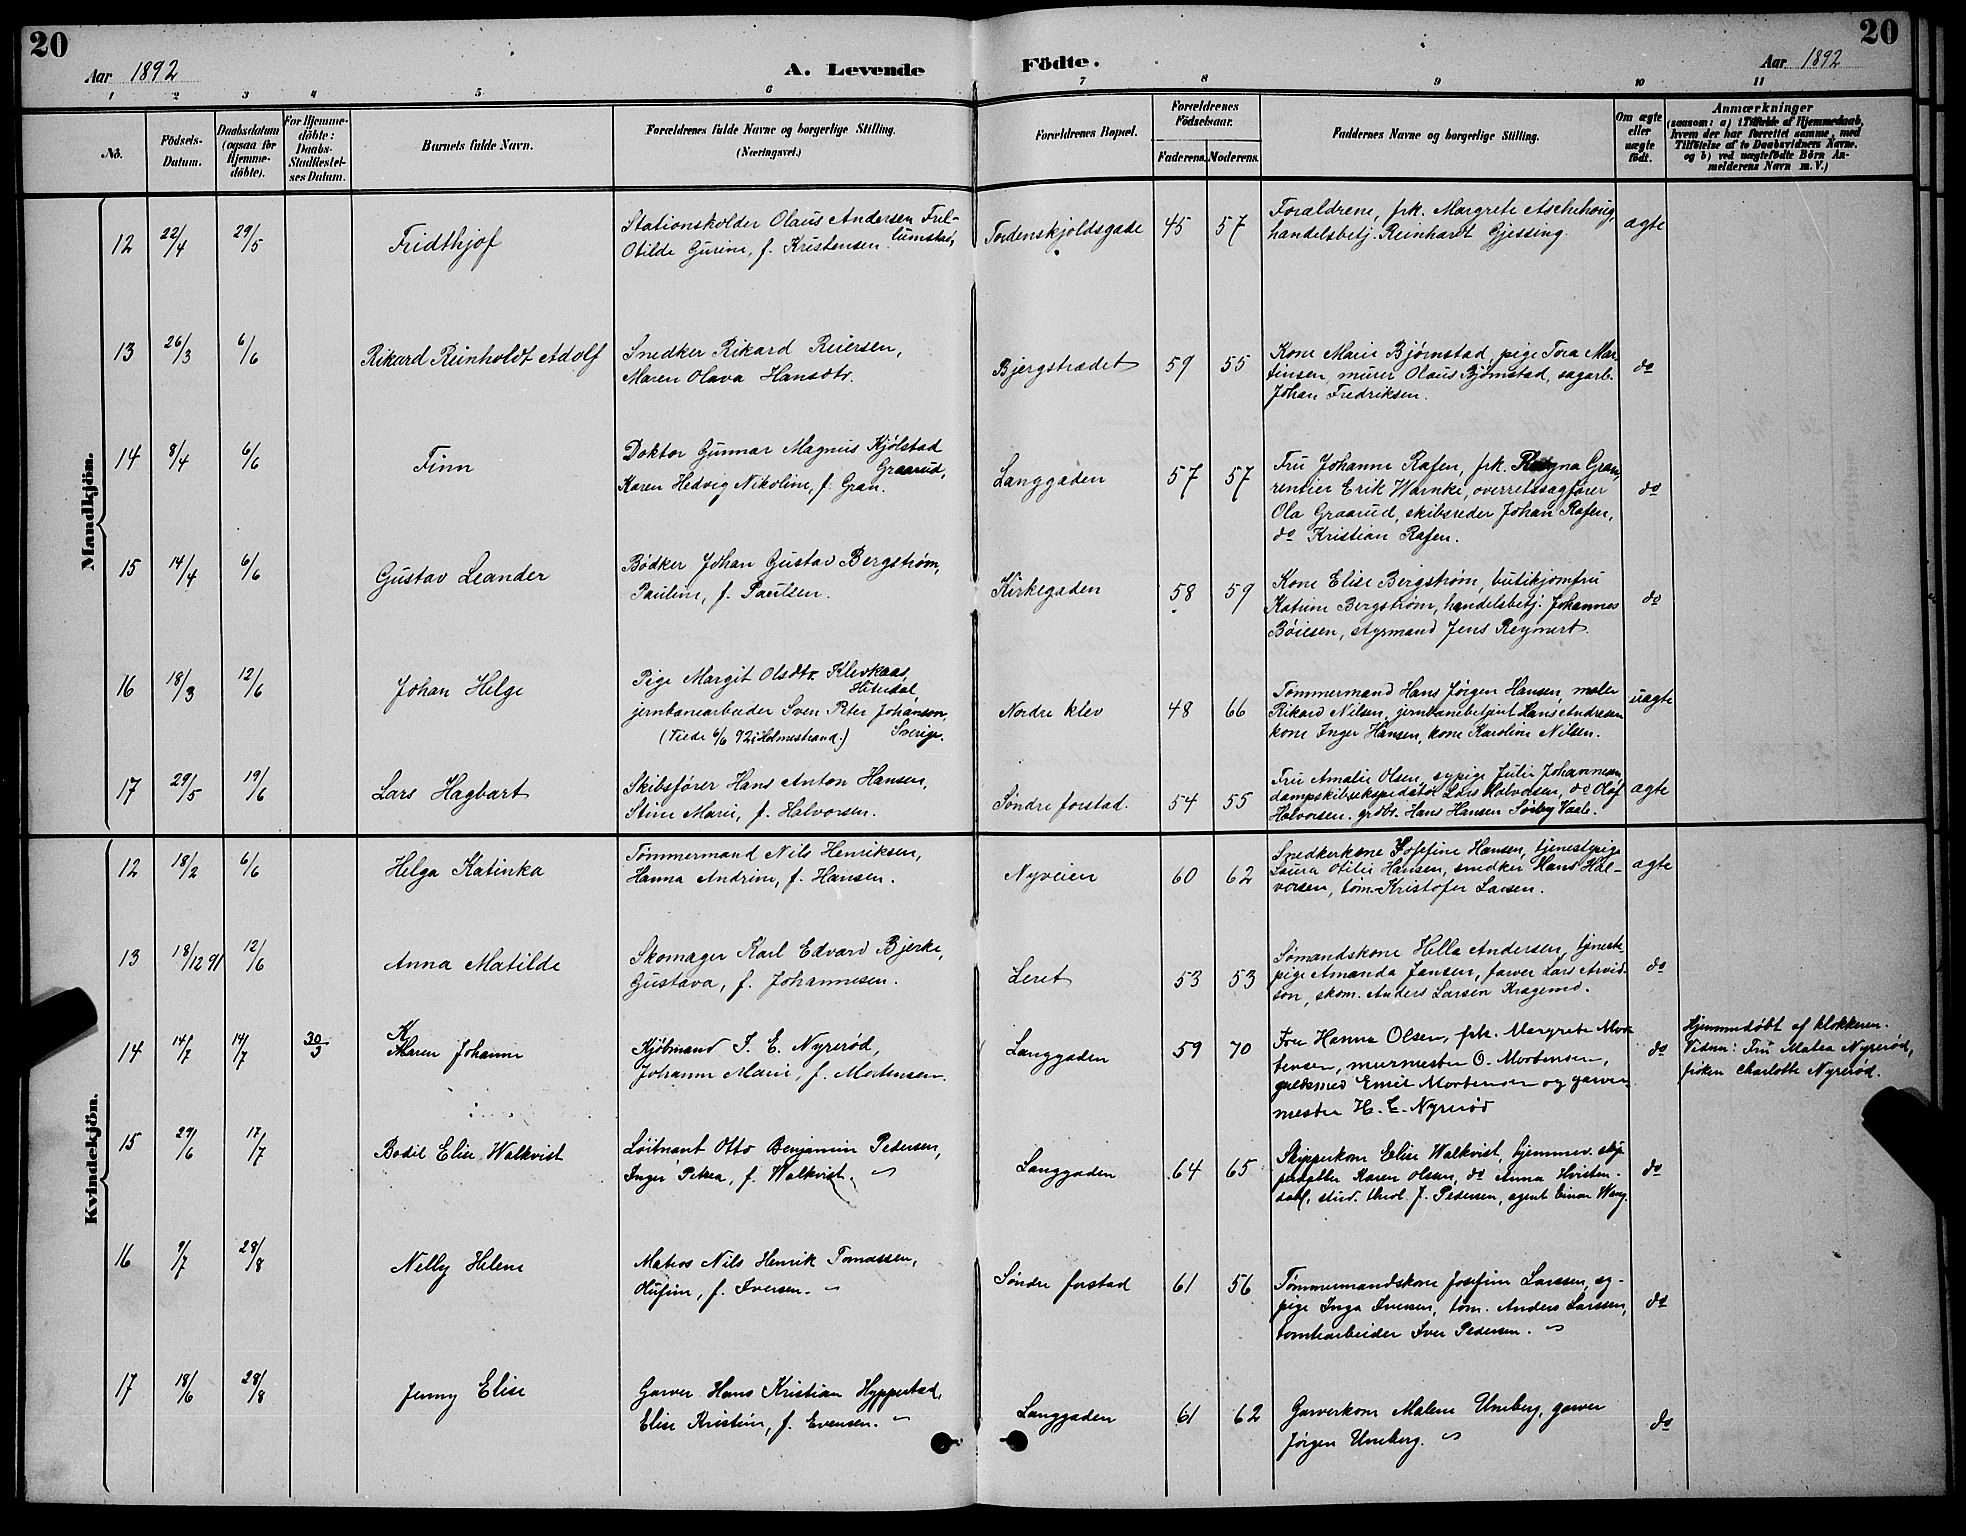 20
20
Aar 1892
A. Levende
Födte.
Aar 1892
1 2 3 4 5 6 7 8 9 10 11
No.
Födsels-
Datum.
Daabsdatum
(ogsaa for
Hjemme-
döbte).
For Hjemme-
döbte:
Daabs-
Stadfæstel-
ses Datum.
Barnets fulde Navn.
Forældrenes fulde Navne og borgerlige Stilling.
(Næringsvei.)
Forældrenes Bopæl.
Forældrenes
Födselsaar.
Faderens. Moderens.
Faddernes Navne og borgerlige Stilling.
Om ægte
eller
uægte
födt.
Anmærkninger
(saasom: a) i Tilfælde af Hjemmedaab,
hvem der har forrettet samme, med
Tilföielse af to Daabsvidners Navne.
og b) ved uægtefödte Börn An-
melderens Navn m. V.)
Mandkjön.
12 22/4 29/5 Fridthjof
Stationsholder Olaus Andersen
Otilde Gurine, f. Kristensen.
Tordenskjoldsgade 45 57
Forældrene, frk. Margrete Aschehoug,
handelsbetj. Reinhart Gjessing.
ægte
13 26/3 6/6 Rikard Reinholdt Adolf
Snedker Rikard Reiersen,
Maren Olava Hansdtr.
Bjergstrædet 59 55
Kone Marie Bjørnstad, pige Tora Mar-
tinsen, murer Olaus Bjørnstad, sagarb.
Johan Fredriksen.
do
14 8/4 6/6 Finn
Doktor Gunnar Magnus Kjølstad
Graarud,
Karen Hedvig Nikoline, f. Gran.
Langgaden 57 57
Fru Johanne Rafen, frk. Ragna Gran,
rentier Erik Warnke, overretssagfører
Ola Graarud, skibsreder Johan Rafen,
do Kristian Rafen.
do
15 14/4 6/6 Gustav Leander
Bødker Johan Gustav Bergstrøm,
Pauline, f. Paulsen.
Kirkegaden 58 59
Kone Elise Bergstrøm, butikjomfru
Katrine Bergstrøm, handelsbetj. Johannes
Bøiesen, styrmand Jens Reynert.
do
16 18/3 12/6 Johan Helge
Pige Margit Olsdtr. Klevkaas,
Hiterdal,
jernbanearbeider Sven Peter Johanson,
Sverige.
(Viede 6/6 92 i Holmestrand.)
Nordre klev 48 66
Tømmermand Hans Jørgen Hansen, maler
Rikard Nilsen, jernbanebetjent Hans Andresen
kone Inger Hansen, kone Karoline Nilsen.
uægte
17 29/5 19/6 Lars Hagbart
Skibsfører Hans Anton Hansen,
Stine Marie, f. Halvorsen.
Søndre forstad. 54 55
Fru Amalie Olsen, sypige Julie Johannesen
dampskibsekspeditør Lars Halvorsen, do Olaf
Halvorsen. grdbr. Hans Hansen Sørby Vaale.
ægte
Kvindekjön.
12 18/2 6/6 Helga Katinka
Tømmermand Nils Henriksen,
Hanna Andrine, f. Hansen.
Nyveien 60 62
Snedkerkone Josefine Hansen, tjenestepige
Laura Otilie Hansen, snedker Hans Hal-
vorsen, tøm. Kristofer Larsen.
ægte
13 18/12 91 12/6 Anna Matilde
Skomager Karl Edvard Bjerke,
Gustava, f. Johannesen.
Leret 53 53
Sømandskone Hella Andersen, tjeneste
pige Amanda Jansen, farver Lars Arvid-
son, skom. Anders Larsen Kragerud.
do
14 14/7 14/7 30/3 Karen Johanne
Kjøbmand I. E. Nyrerød,
Johanne Marie, f. Mortensen.
Langgaden 59 70
Fru Hanna Olsen, frk. Margrete Mor-
tensen, murmester O. Mortensen,
guldsmed Emil Mortensen og garver
mester H. E. Nyrerød
do
Hjemmedøbt af klokkeren.
Vidner: Fru Matea Nyrerød,
frøken Charlotte Nyrerød.
15 29/6 17/7 Bodil Elise Walkvist
Løitnant Otto Benjamin Pedersen,
Inger Petrea, f. Walkvist.
Langgaden 64 65
Skipperkone Elise Walkvist, hjemmev. skip-
perdatter Karen Olsen, do Anna Hvisten-
dahl, stud. theol. J. Pedersen, agent Einar Wang.
do
16 9/7 28/8 Nelly Helene
Matros Nils Henrik Tomassen,
f. Iversen.
Søndre forstad 61 56
Tømmermandskone Josefine Larssen, sy-
pige Inga Iversen, tøm. Anders Larssen,
tomtearbeider Iver Pedersen.
do
17 18/6 28/8 Jenny Elise
Garver Hans Kristian Hyppestad,
Elise Kristine, f. Evensen.
Langgaden 61 62
Garverkone Malene Uneberg, garver
Jørgen Uneberg.
do